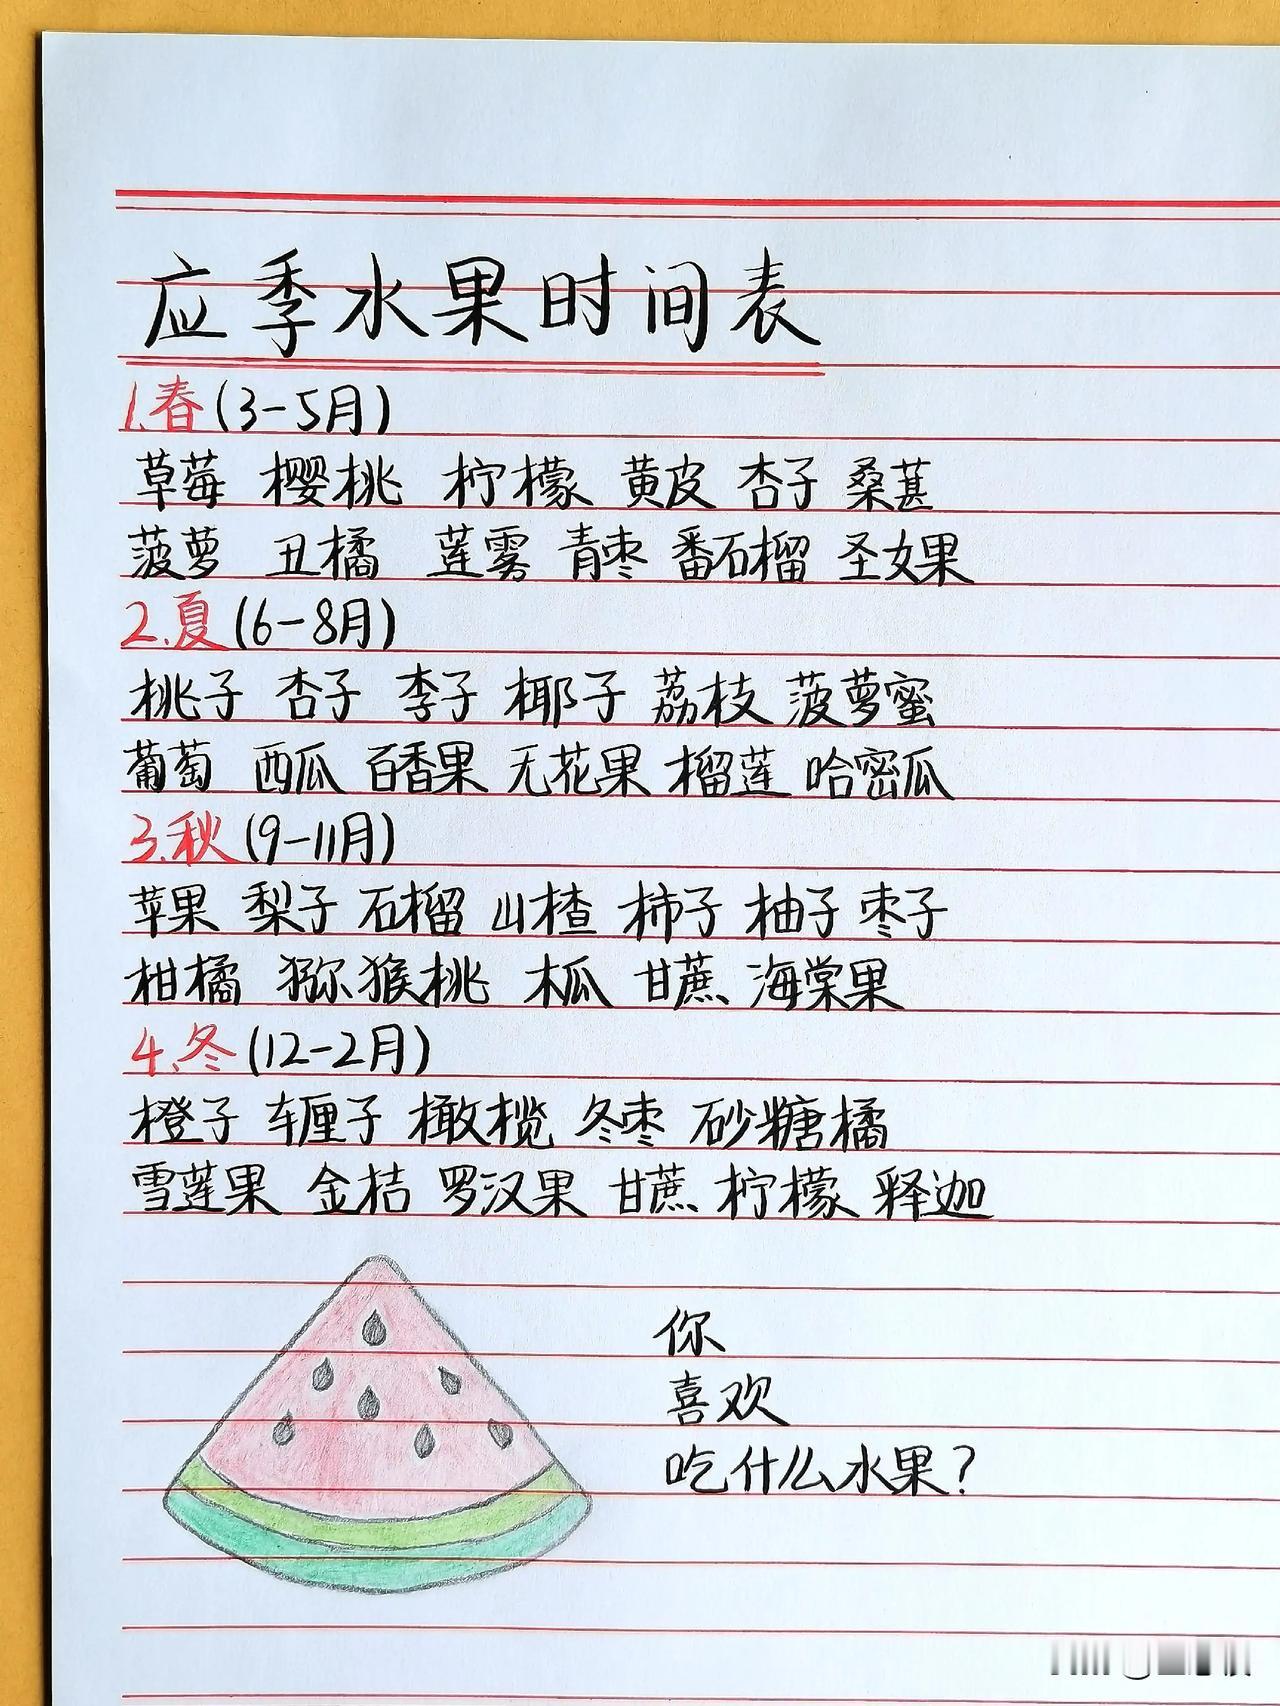 应季水果时间表
1.春(3-5月)
草莓 樱桃 柠檬 黄皮 杏子 桑葚
菠萝 丑橘 莲雾 青枣 番石榴 圣女果
2.夏(6-8月)
桃子 杏子 李子 椰子 荔枝 菠萝蜜
葡萄 西瓜 百香果 无花果 榴莲 哈密瓜
3.秋(9-11月)
苹果 梨子 石榴 山楂 柿子 柚子 枣子
柑橘 猕猴桃 木瓜 甘蔗 海棠果
4.冬(12-2月)
橙子 车厘子 橄榄 冬枣 砂糖橘
雪莲果 金桔 罗汉果 甘蔗 柠檬 释迦
你
喜欢
吃什么水果?